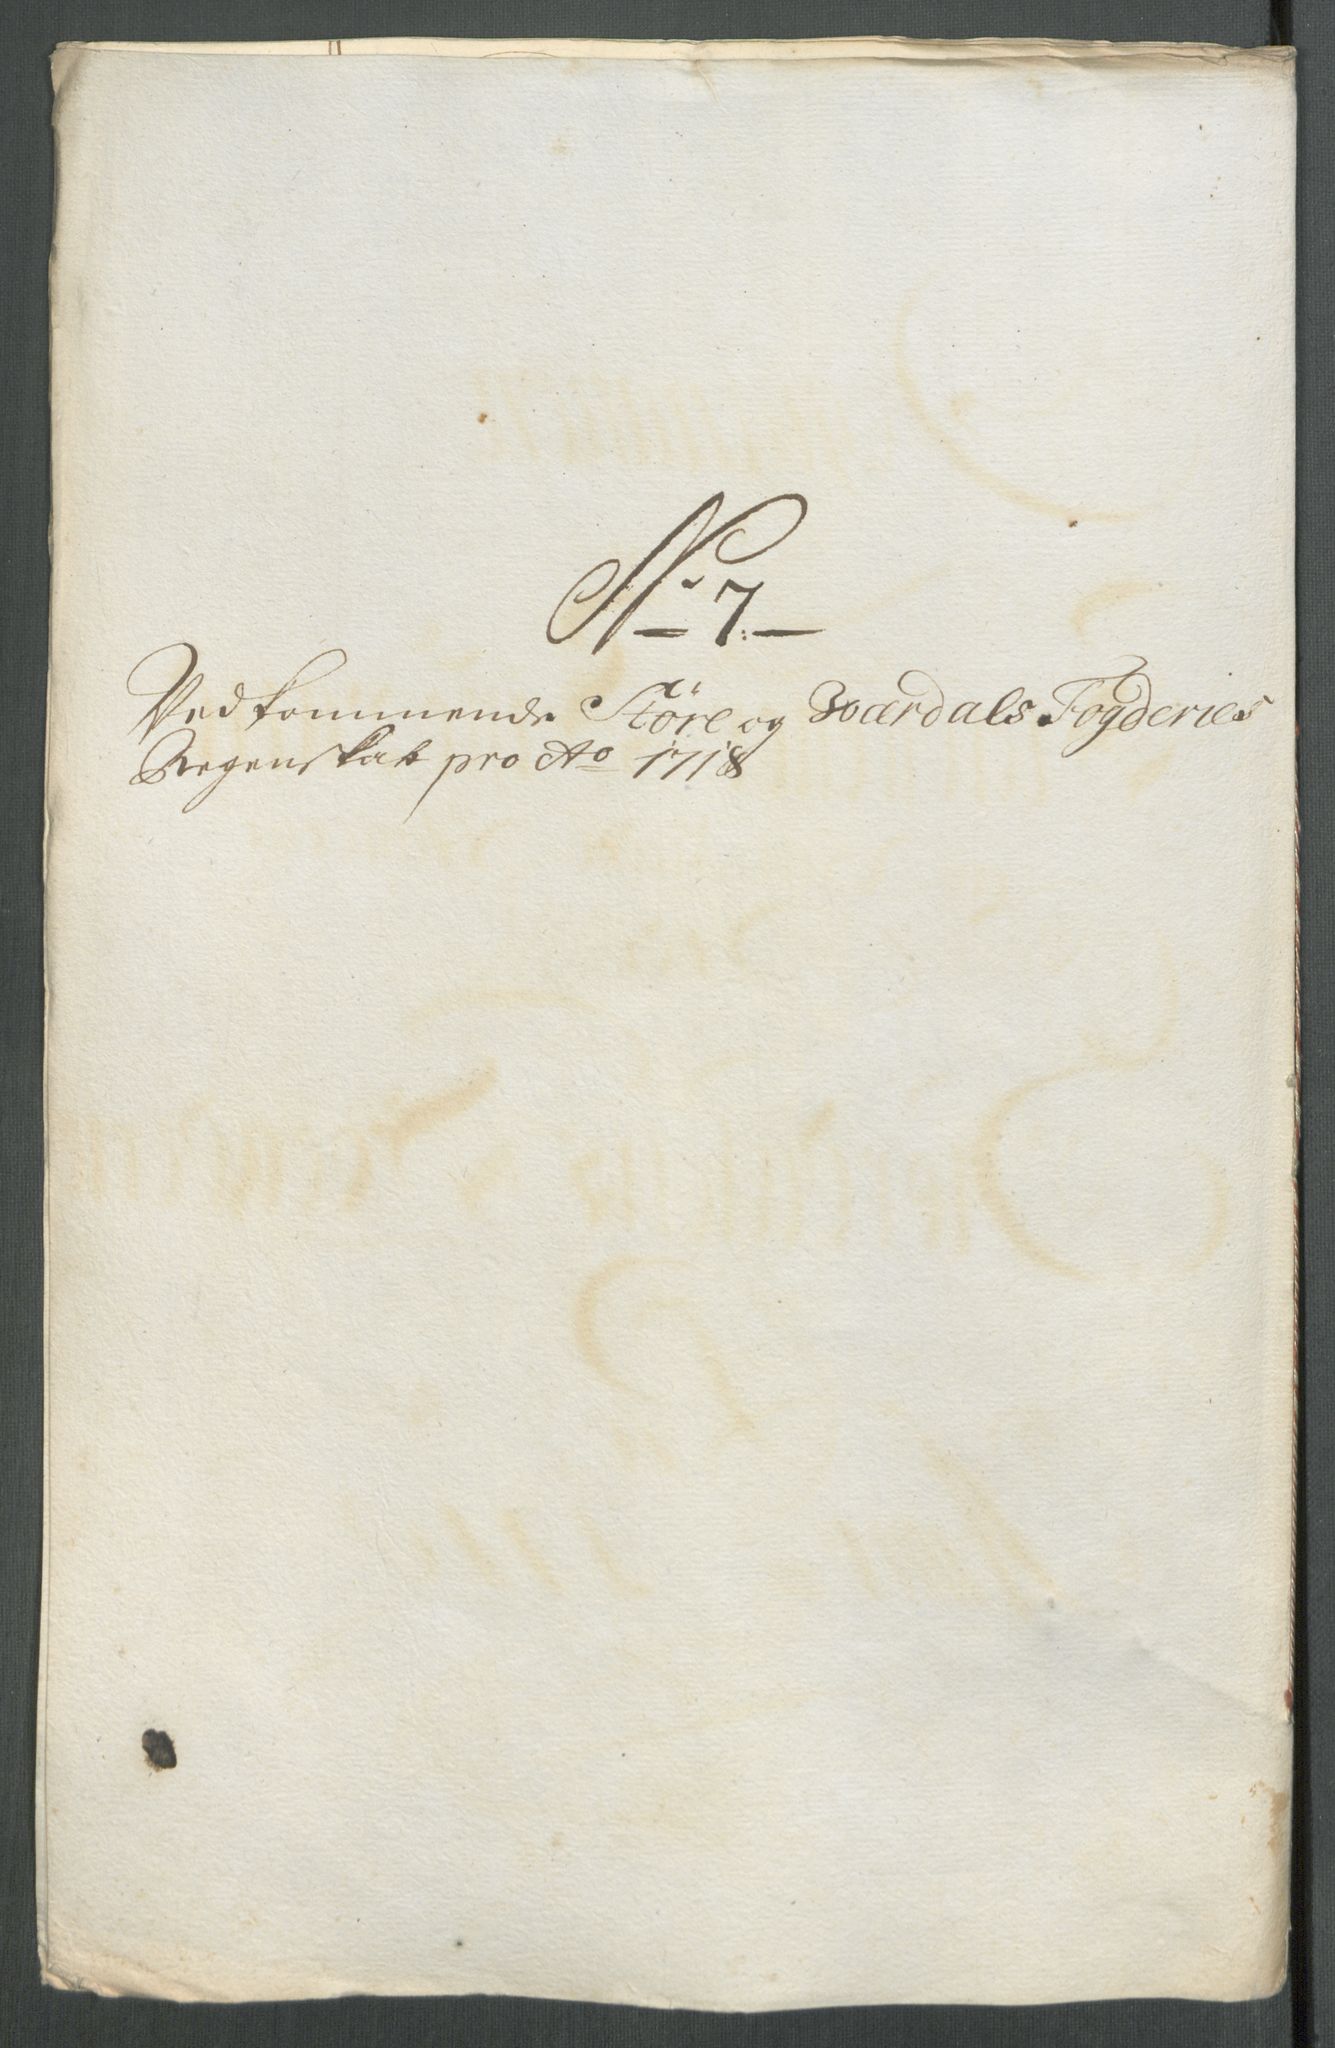 No 7.
Vedkommende Störe og Værdals Fogderies
Regenskab pro Ao 1718